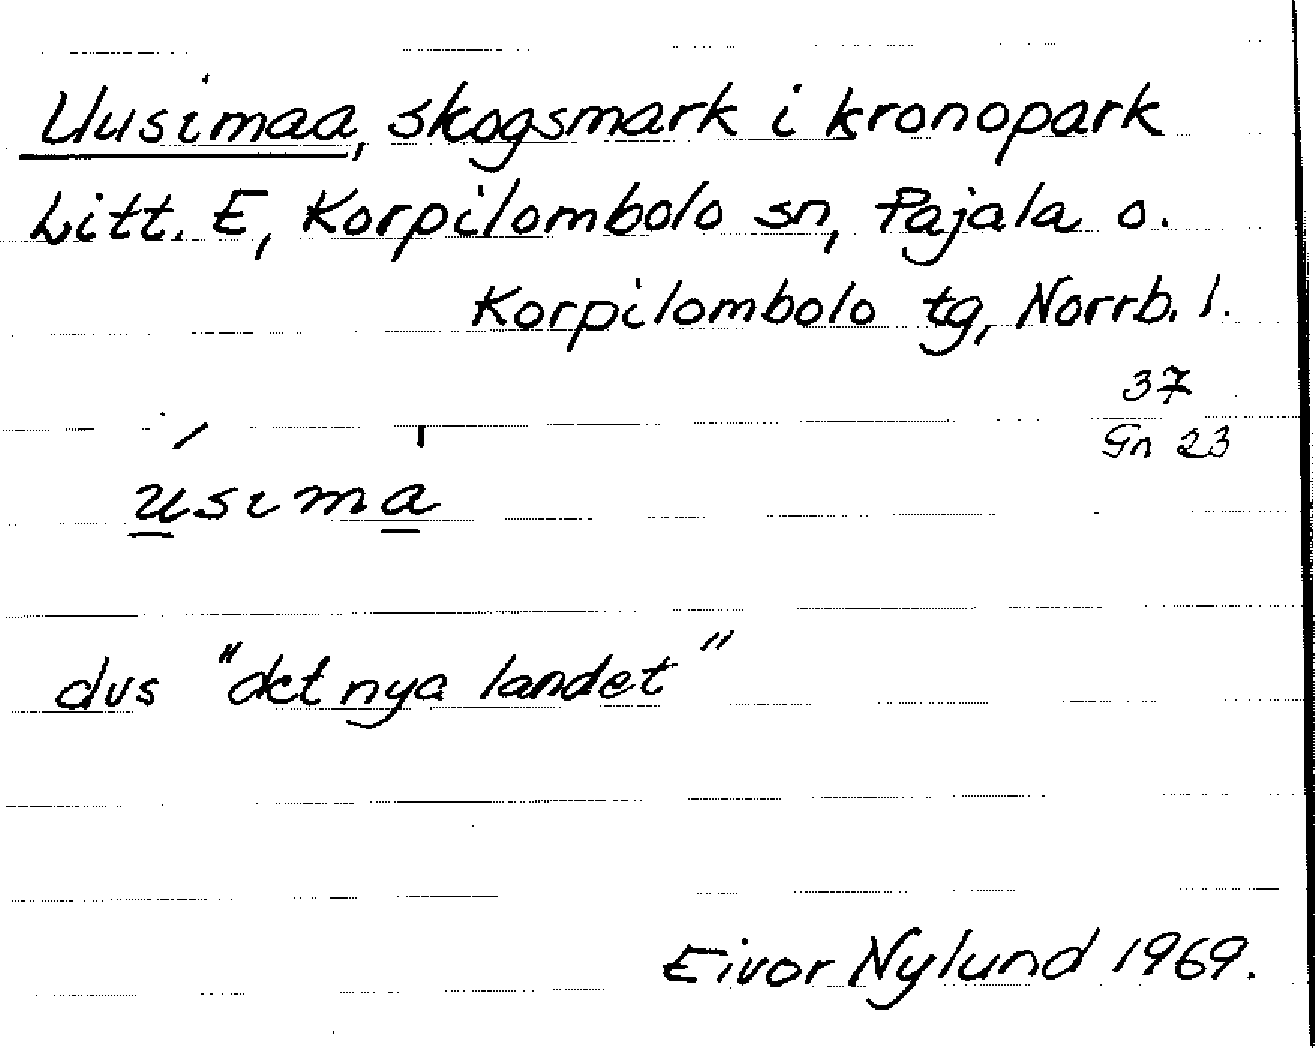 Uusimaa, skogsmark i kronopark
Litt. E, Korpilombolo sn, Pajala o.
Korpilombolo tg, Norrb. l.
37
Gn 23
ú̲sɩma̲̍
dvs "det nya landet"
Eivor Nylund 1969.